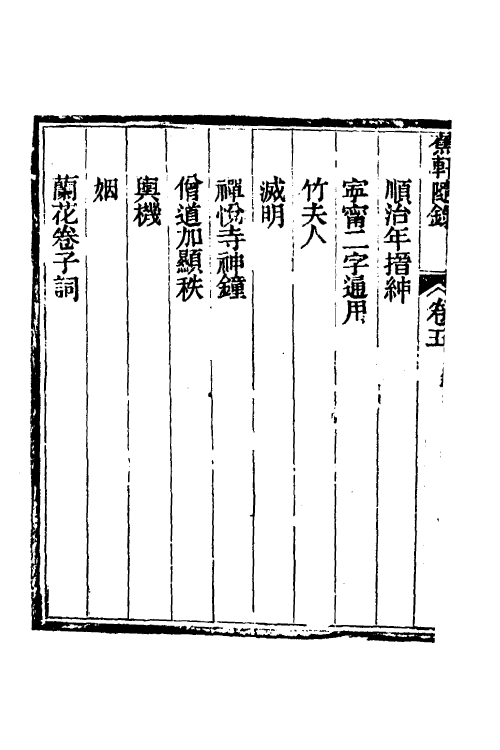 蕉軒隨錄
卷五
順治年搢紳
寜甯二字通用
竹夫人
滅明
禪悅寺神鐘
僧道加顯秩
輿機
姻
蘭花卷子詞